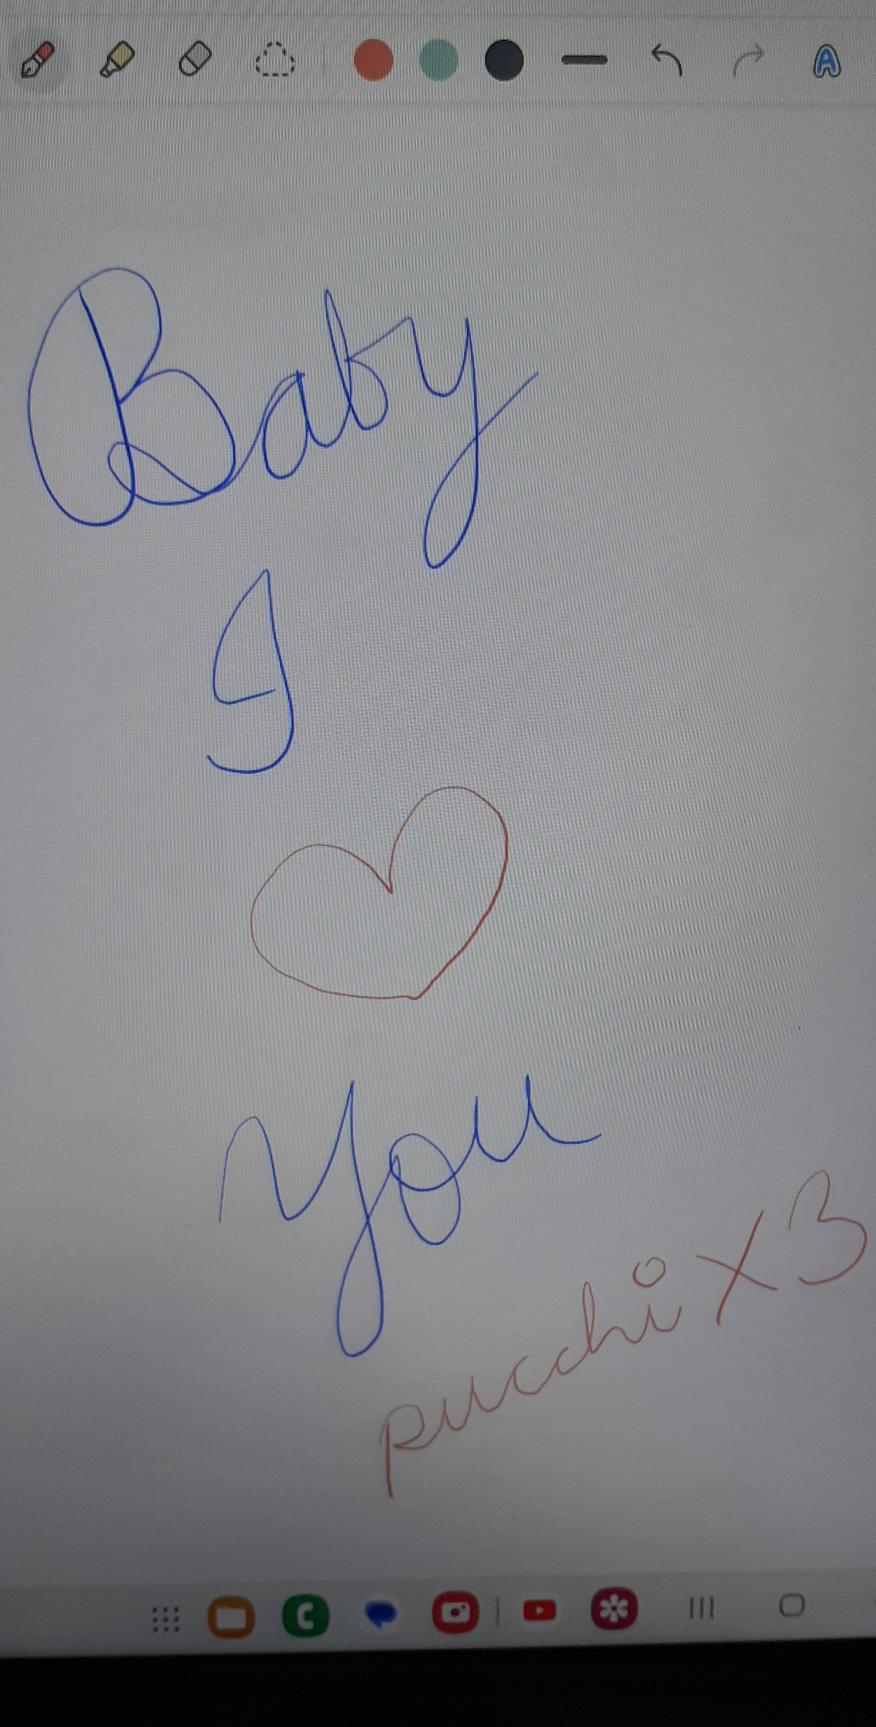 Baby
I
You
pucchi X 3